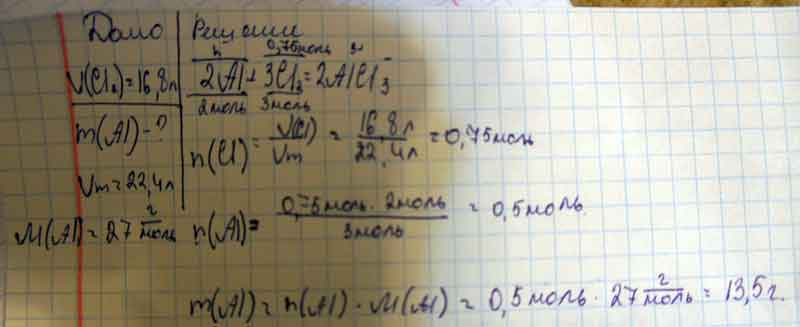 Дано
V(Cl₂)=16,8л
m(Al)-?
Vm=22,4л
M(Al)=27 г/моль
Решение
n 0,75моль
2Al+3Cl₂=2AlCl₃
2моль 3моль
n(Cl)=V(Cl)/Vm=16,8л/22,4л=0,75моль
n(Al)=0,75моль·2моль/3моль=0,5моль
m(Al)=n(Al)·M(Al)=0,5моль·27 г/моль=13,5г.